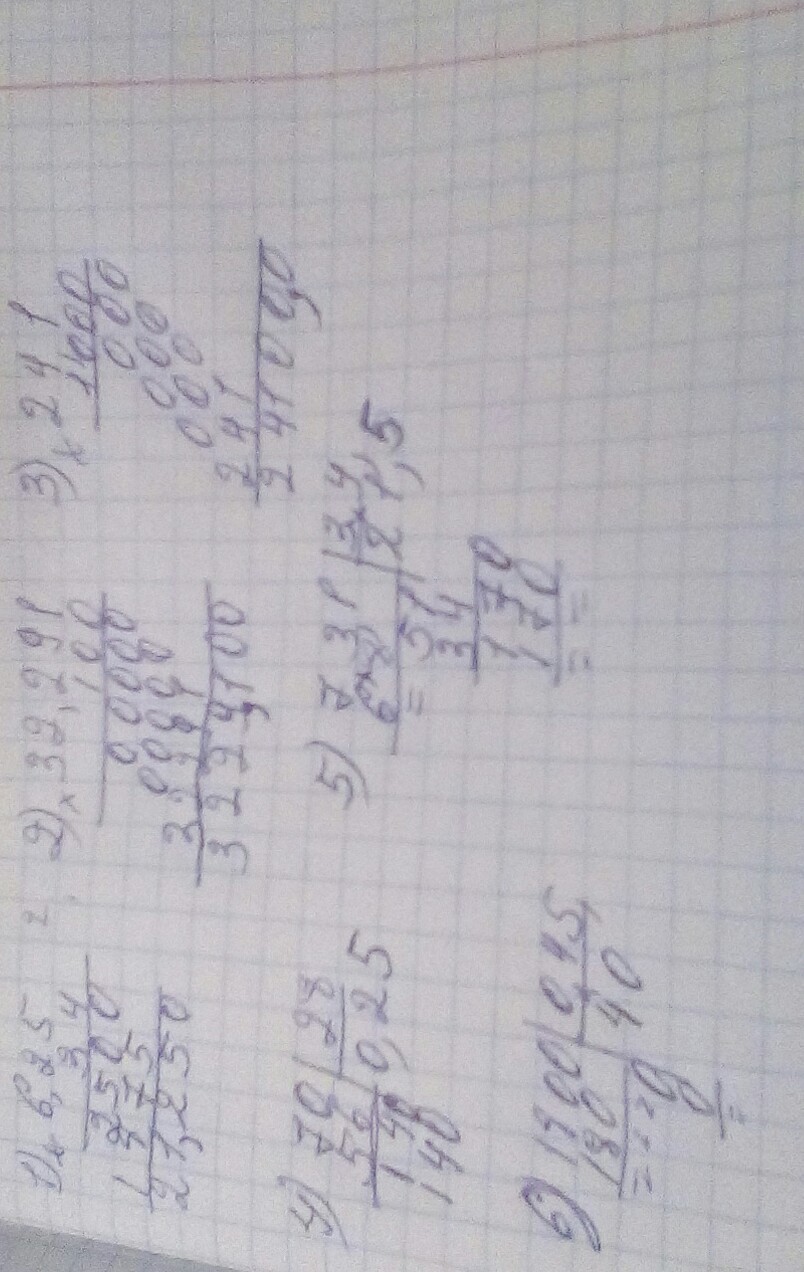 1) × 6,25
3 4
2500
1875
21,250
2) × 32,291
100
0000
0000
3229100
3) × 241
1000
000
000
000
241
241000
4) 70 | 28
56 | 0,25
140
140
5) 731 | 3,4
68 | 21,5
= 51
34
170
170
= =
6) 1800 | 0,45
180 | 40
0
0
=